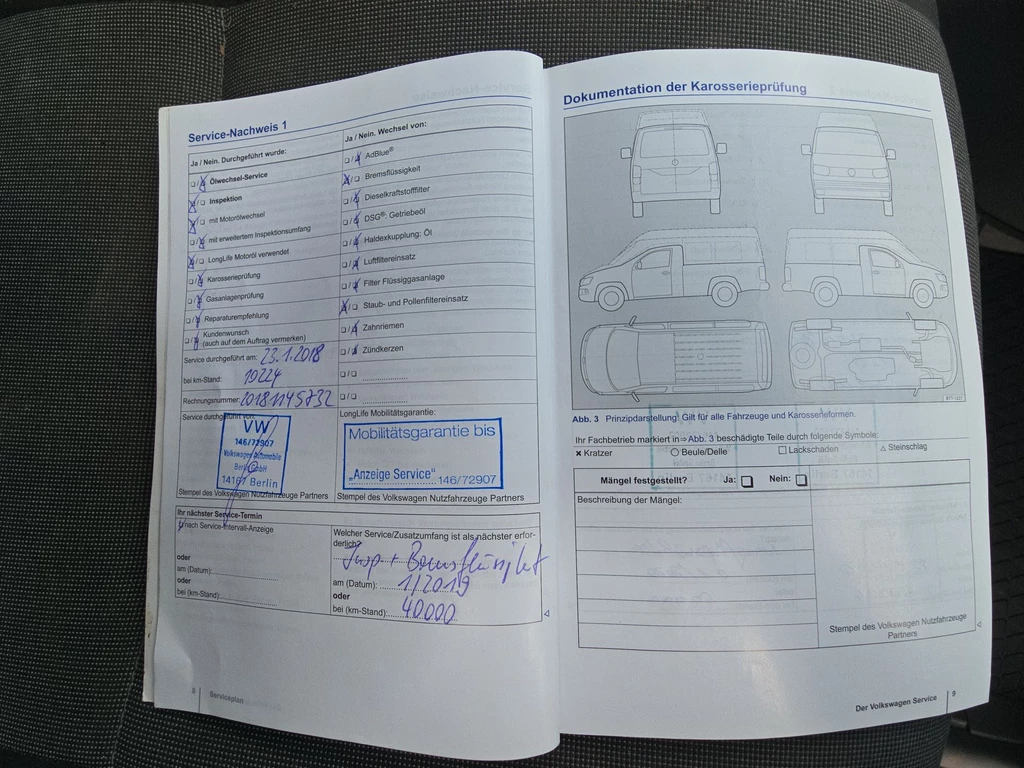 Service-Nachweis 1
Ja / Nein. Durchgeführt wurde:
Ölwechsel-Service
Inspektion
mit Motorölwechsel
mit erweitertem Inspektionsumfang
LongLife Motoröl verwendet
Karosserieprüfung
Gasanlagenprüfung
Reparaturempfehlung
Kundenwunsch
(auch auf dem Auftrag vermerken)
Service durchgeführt am: 23.1.2018
bei km-Stand: 19224
Rechnungsnummer: 20181145732
Ja / Nein. Wechsel von:
AdBlue®
Bremsflüssigkeit
Dieselkraftstofffilter
DSG®: Getriebeöl
Haldexkupplung: Öl
Luftfiltereinsatz
Filter Flüssiggasanlage
Staub- und Pollenfiltereinsatz
Zahnriemen
Zündkerzen
Service durchgeführt von:
VW
146/72907
Volkswagen Automobile
Berlin GmbH
14167 Berlin
Stempel des Volkswagen Nutzfahrzeuge Partners
LongLife Mobilitätsgarantie:
Mobilitätsgarantie bis
„Anzeige Service" 146/72907
Stempel des Volkswagen Nutzfahrzeuge Partners
Ihr nächster Service-Termin
nach Service-Intervall-Anzeige
oder
am (Datum):
oder
bei (km-Stand):
Welcher Service/Zusatzumfang ist als nächster erfor-
derlich?
Insp. + Bremsflüssigkt
am (Datum): 1/2019
oder
bei (km-Stand): 40.000
8 Serviceplan
Dokumentation der Karosserieprüfung
Abb. 3 Prinzipdarstellung: Gilt für alle Fahrzeuge und Karosserieformen.
Ihr Fachbetrieb markiert in ⇒ Abb. 3 beschädigte Teile durch folgende Symbole:
× Kratzer ○ Beule/Delle □ Lackschaden △ Steinschlag
Mängel festgestellt? Ja: □ Nein: □
Beschreibung der Mängel:
Stempel des Volkswagen Nutzfahrzeuge
Partners
Der Volkswagen Service 9